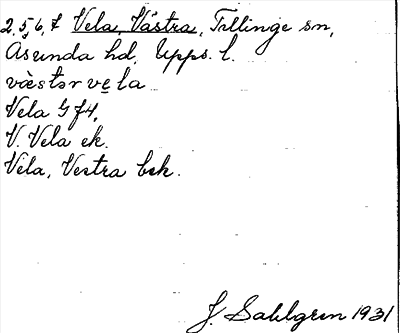 2,5,6,7 Vela, Västra, Tillinge sn,
Åsunda hd, Upps. l.
væstər vela
Vela G J4,
V. Vela ek.
Vela, Vestra bsk.
J. Sahlgren 1931